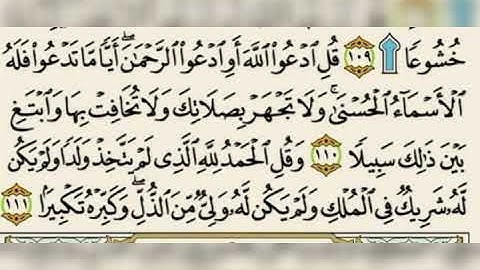 خُشُوعًا ۩ ١٠٩ قُلِ ٱدْعُوا۟ ٱللَّهَ أَوِ ٱدْعُوا۟ ٱلرَّحْمَٰنَ ۖ أَيًّا مَّا تَدْعُوا۟ فَلَهُ
ٱلْأَسْمَآءُ ٱلْحُسْنَىٰ ۚ وَلَا تَجْهَرْ بِصَلَاتِكَ وَلَا تُخَافِتْ بِهَا وَٱبْتَغِ
بَيْنَ ذَٰلِكَ سَبِيلًا ١١٠ وَقُلِ ٱلْحَمْدُ لِلَّهِ ٱلَّذِى لَمْ يَتَّخِذْ وَلَدًا وَلَمْ يَكُن
لَّهُۥ شَرِيكٌ فِى ٱلْمُلْكِ وَلَمْ يَكُن لَّهُۥ وَلِىٌّ مِّنَ ٱلذُّلِّ ۖ وَكَبِّرْهُ تَكْبِيرًۢا ١١١